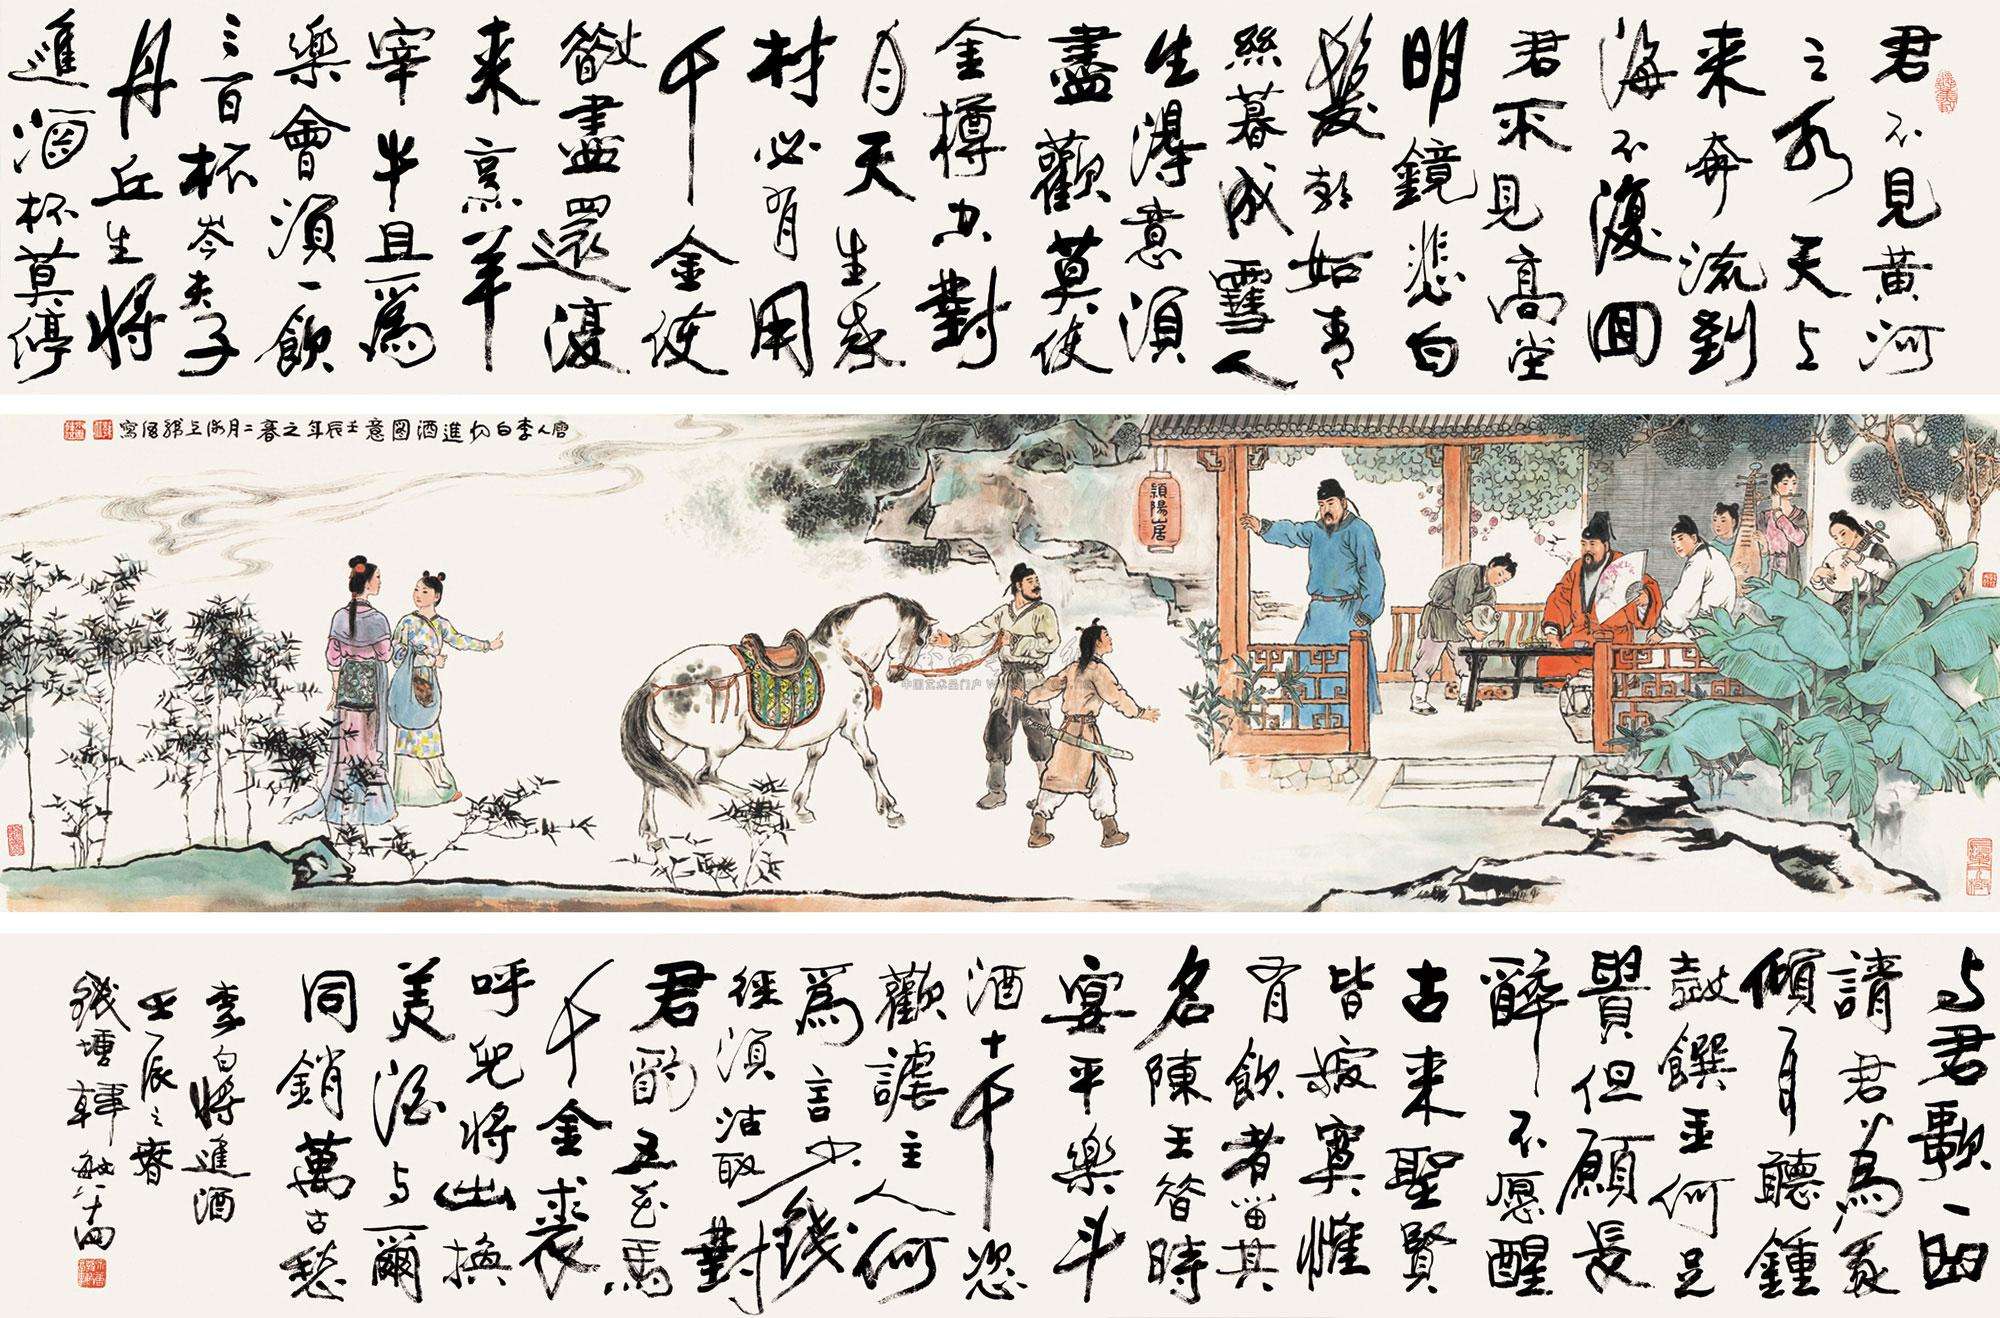 君不見黃河
之水天上
来奔流到
海不復回
君不見高堂
明鏡悲白
髮朝如青
絲暮成雪人
生得意須
盡歡莫使
金樽空對
月天生我
材必有用
千金使
散盡還復
来烹羊
宰牛且爲
樂會須一飲
三百杯岑夫子
丹丘生將
進酒杯莫停
唐人李白将進酒圖意壬辰年之春二月海上韓伍寫
潁陽山居
中国艺术品门户
与君歌一曲
請君为我
傾耳聽鍾
鼓饌玉何足
貴但願長
醉不愿醒
古来聖賢
皆寂寞惟
有飲者留其
名陳王昔時
宴平樂斗
酒十千恣
歡謔主人何
爲言少錢
径須沽取對
君酌五花馬
千金裘
呼兒将出換
美酒与爾
同銷萬古愁
李白將進酒
壬辰之春
錢塘韓敏八十四